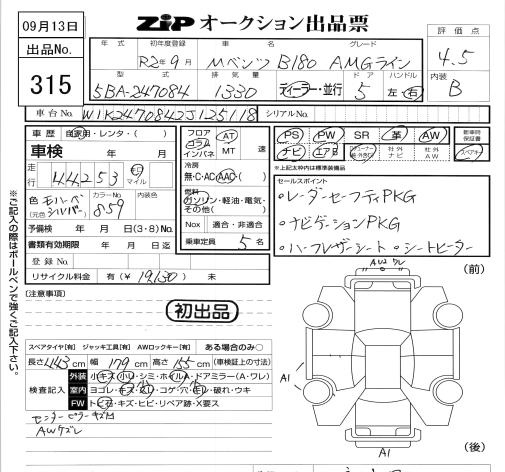 09月13日
ZIP オークション出品票
出品No.
315
年式 初年度登録 車名 グレード
R2年9月 Mベンツ B180 AMGライン
型式 排気量 ドア ハンドル
5BA-247084 1330 ディーラー・並行 5 左・右
評価点
4.5
内装
B
車台No. W1K2470842J125118 シリアルNo.
車歴 自家用・レンタ・( )
車検 年 月 日
走行 44253 キロ マイル
色 モハーベシルバー
(元色 ) カラーNo. 859 内装色
予備検 年 月 日(3・8)No.
書類有効期限 年 月 日迄
登録No.
リサイクル料金 有(¥ 19,130 ) 未
フロア コラム インパネ AT MT 速
冷房
無・C・AC・AAC・( )
燃料
ガソリン・軽油・電気・その他( )
Nox 適合・非適合
乗車定員 5 名
PS PW SR 革 AW
ナビ エアB 社外ナビ 社外AW
新車時保証書
スペアキー
*上記太枠内は標準装備品
セールスポイント
・レーダーセーフティPKG
・ナビゲーションPKG
・ハーフレザーシート ・シートヒーター
※ご記入の際はボールペンで強くご記入下さい。
(注意事項)
初出品
スペアタイヤ[有] ジャッキ工具[有] AWロックキー[有] ある場合のみ○
長さ 443 cm 幅 179 cm 高さ 155 cm (車検証上の寸法)
検査記入
外装 小キズ・小凹・シミ・ホイルA・ドアミラー(A・ワレ)
室内 ヨゴレ・キズ・スレ・コゲ・穴・モレ・破れ・ウキ
FW トビ石・キズ・ヒビ・リペア跡・X要ス
センターピラーキズ凹
AWケズレ
AW2 ワレ
(前)
A1
A1
(後)